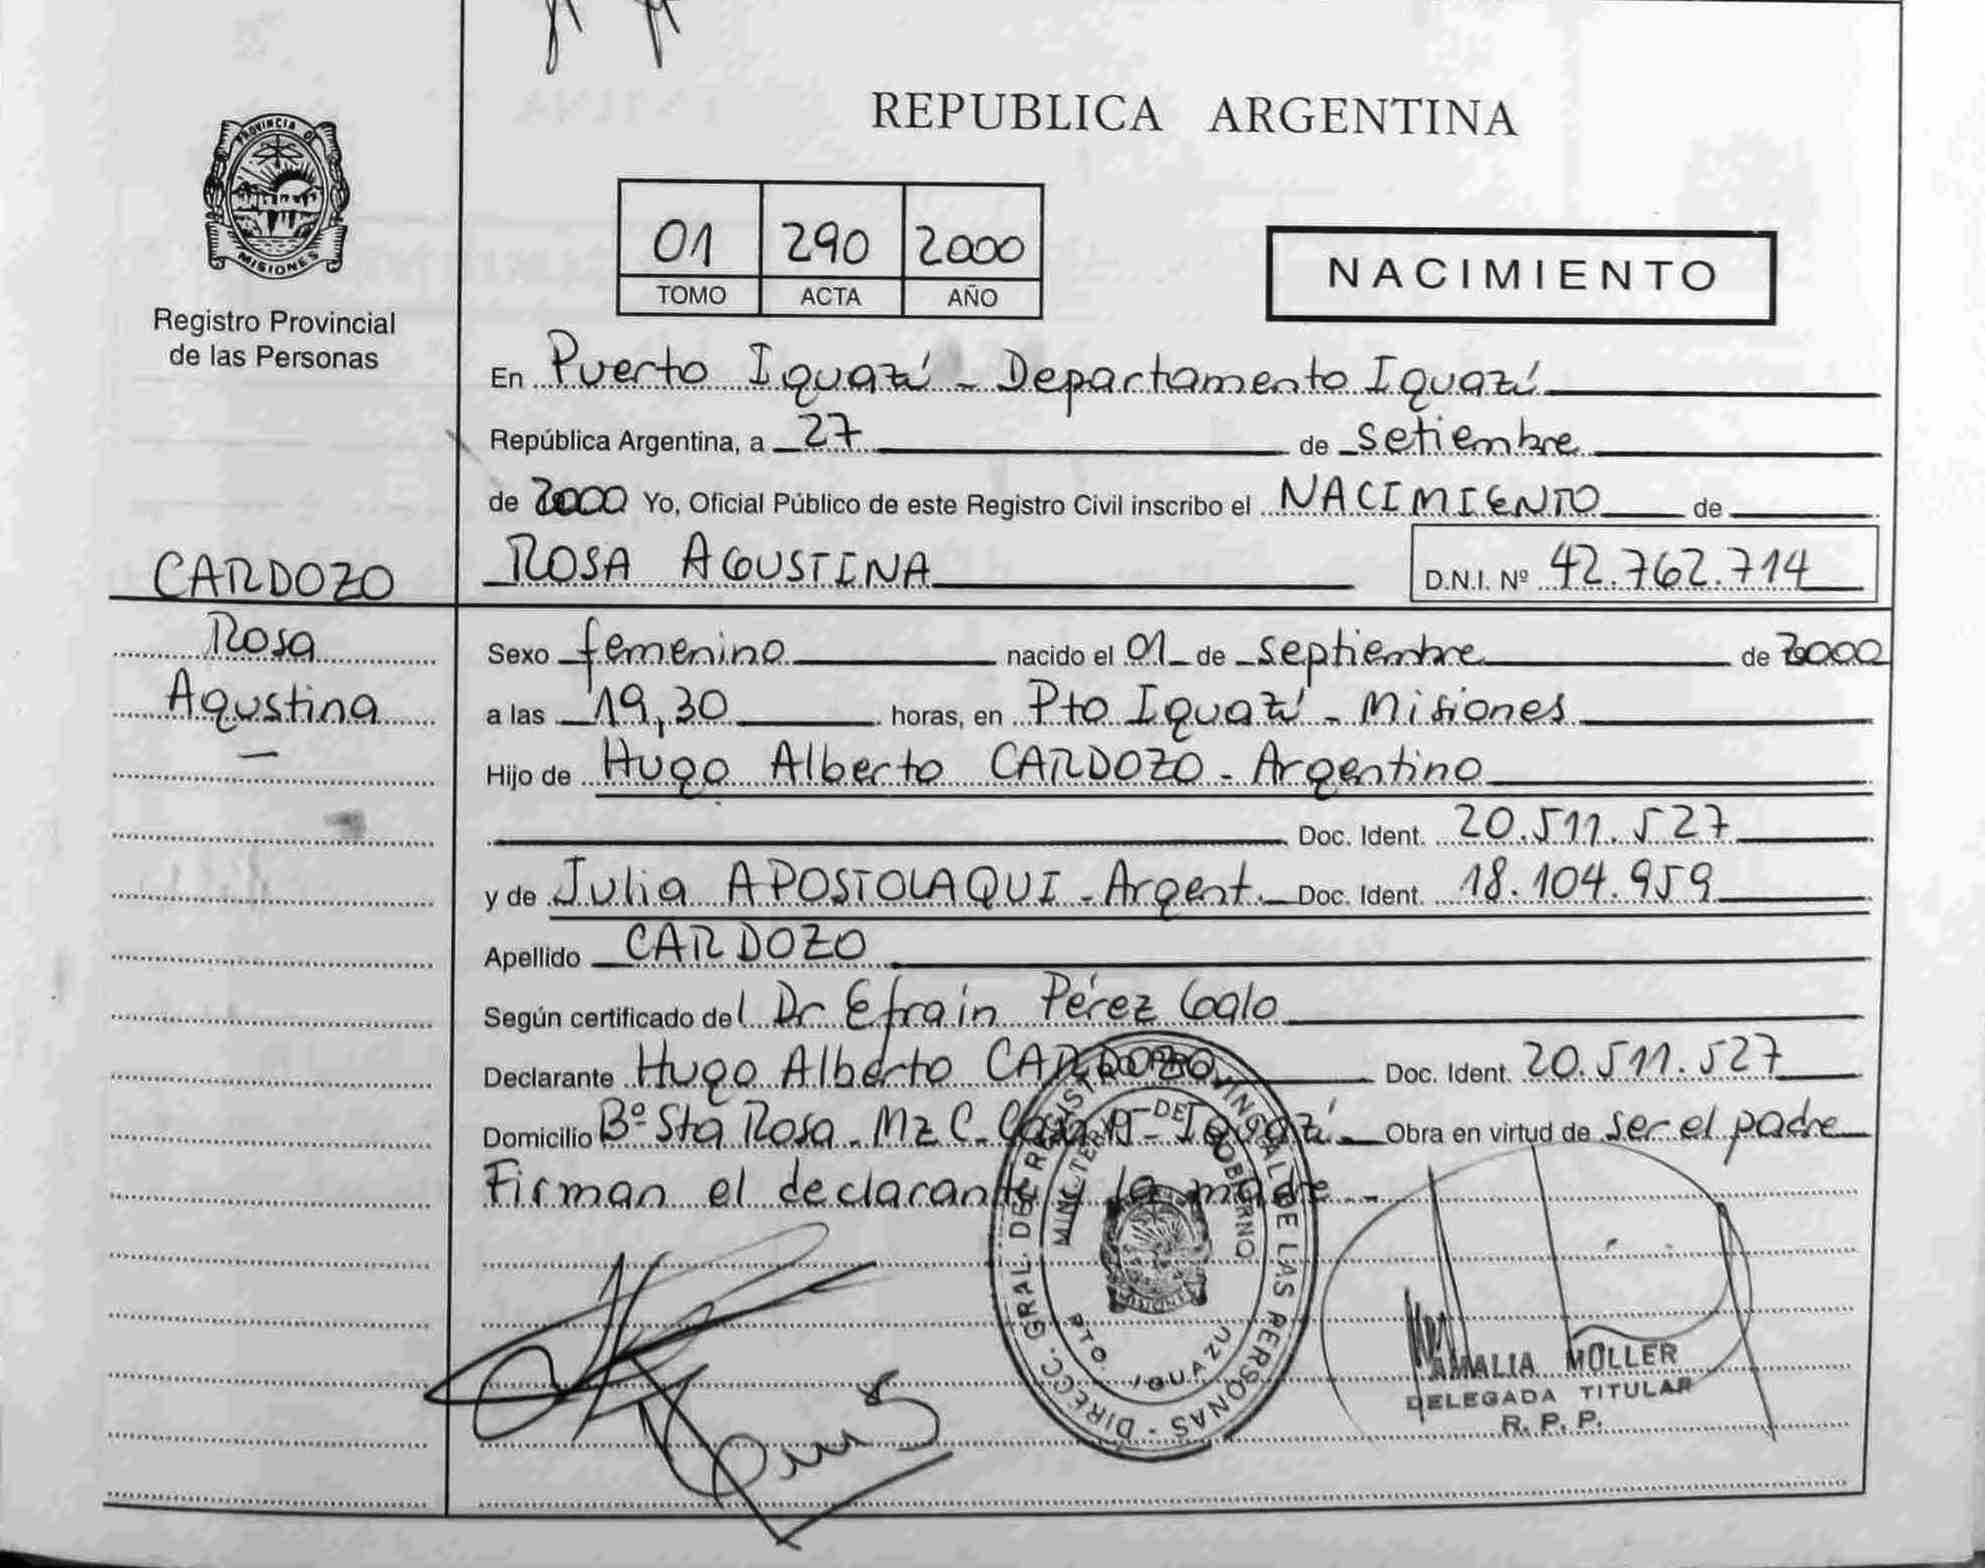 REPUBLICA ARGENTINA
PROVINCIA DE
MISIONES
Registro Provincial
de las Personas
01 290 2000
TOMO ACTA AÑO
NACIMIENTO
En Puerto Iguazú - Departamento Iguazú
República Argentina, a 27 de setiembre
de 2000 Yo, Oficial Público de este Registro Civil inscribo el NACIMIENTO de
CARDOZO
ROSA AGUSTINA D.N.I. Nº 42.762.714
Rosa
Agustina
Sexo femenino nacido el 01 de septiembre de 2000
a las 19,30 horas, en Pto Iguazú - Misiones
Hijo de Hugo Alberto CARDOZO - Argentino
Doc. Ident. 20.511.527
y de Julia APOSTOLAQUI - Argent. Doc. Ident. 18.104.959
Apellido CARDOZO
Según certificado del Dr Efraín Pérez
Declarante Hugo Alberto CARDOZO Doc. Ident. 20.511.527
Domicilio Bº Sta Rosa - Mz C - Casa - Iguazú Obra en virtud de ser el padre
Firman el declarante y la madre --
DIRECC. GRAL. DE REGISTRO PROVINCIAL DE LAS PERSONAS
MINISTERIO DE GOBIERNO
PTO. IGUAZU
AMALIA MOLLER
DELEGADA TITULAR
R. P. P.